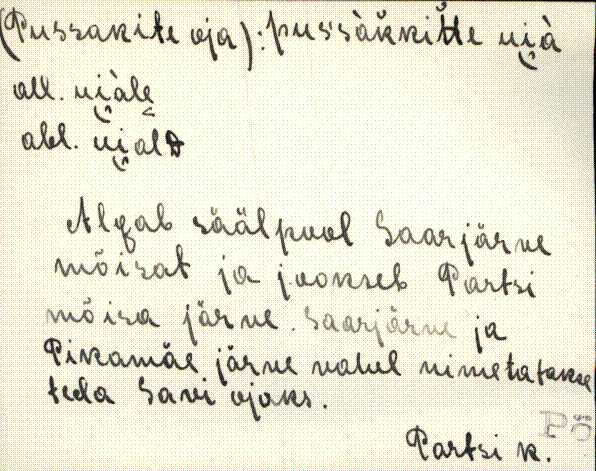 (Pussakite oja): pus'sàk̆kĭtte ui̯à
all. ui̯àle̬
abl. ui̯alᴅ
Algab säälpool Saarjärve
mõisat ja jookseb Partsi
mõisa järve. Saarjärve ja
Pikamäe järve vahel nimetatakse
teda Savi ojaks.
Põ
Partsi k.